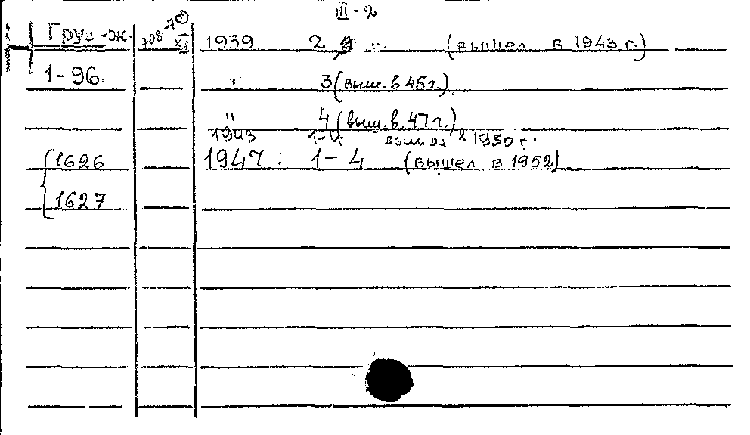 III-2
Груз-ж. 1939 2 (вышел в 1943 г.)
1-96. 3 (выш. в 45 г.)
" 4 (выш. в 47 г.)
1943 1-4 в 1950 г.
1626 1947: 1-4 (вышел в 1952)
1627